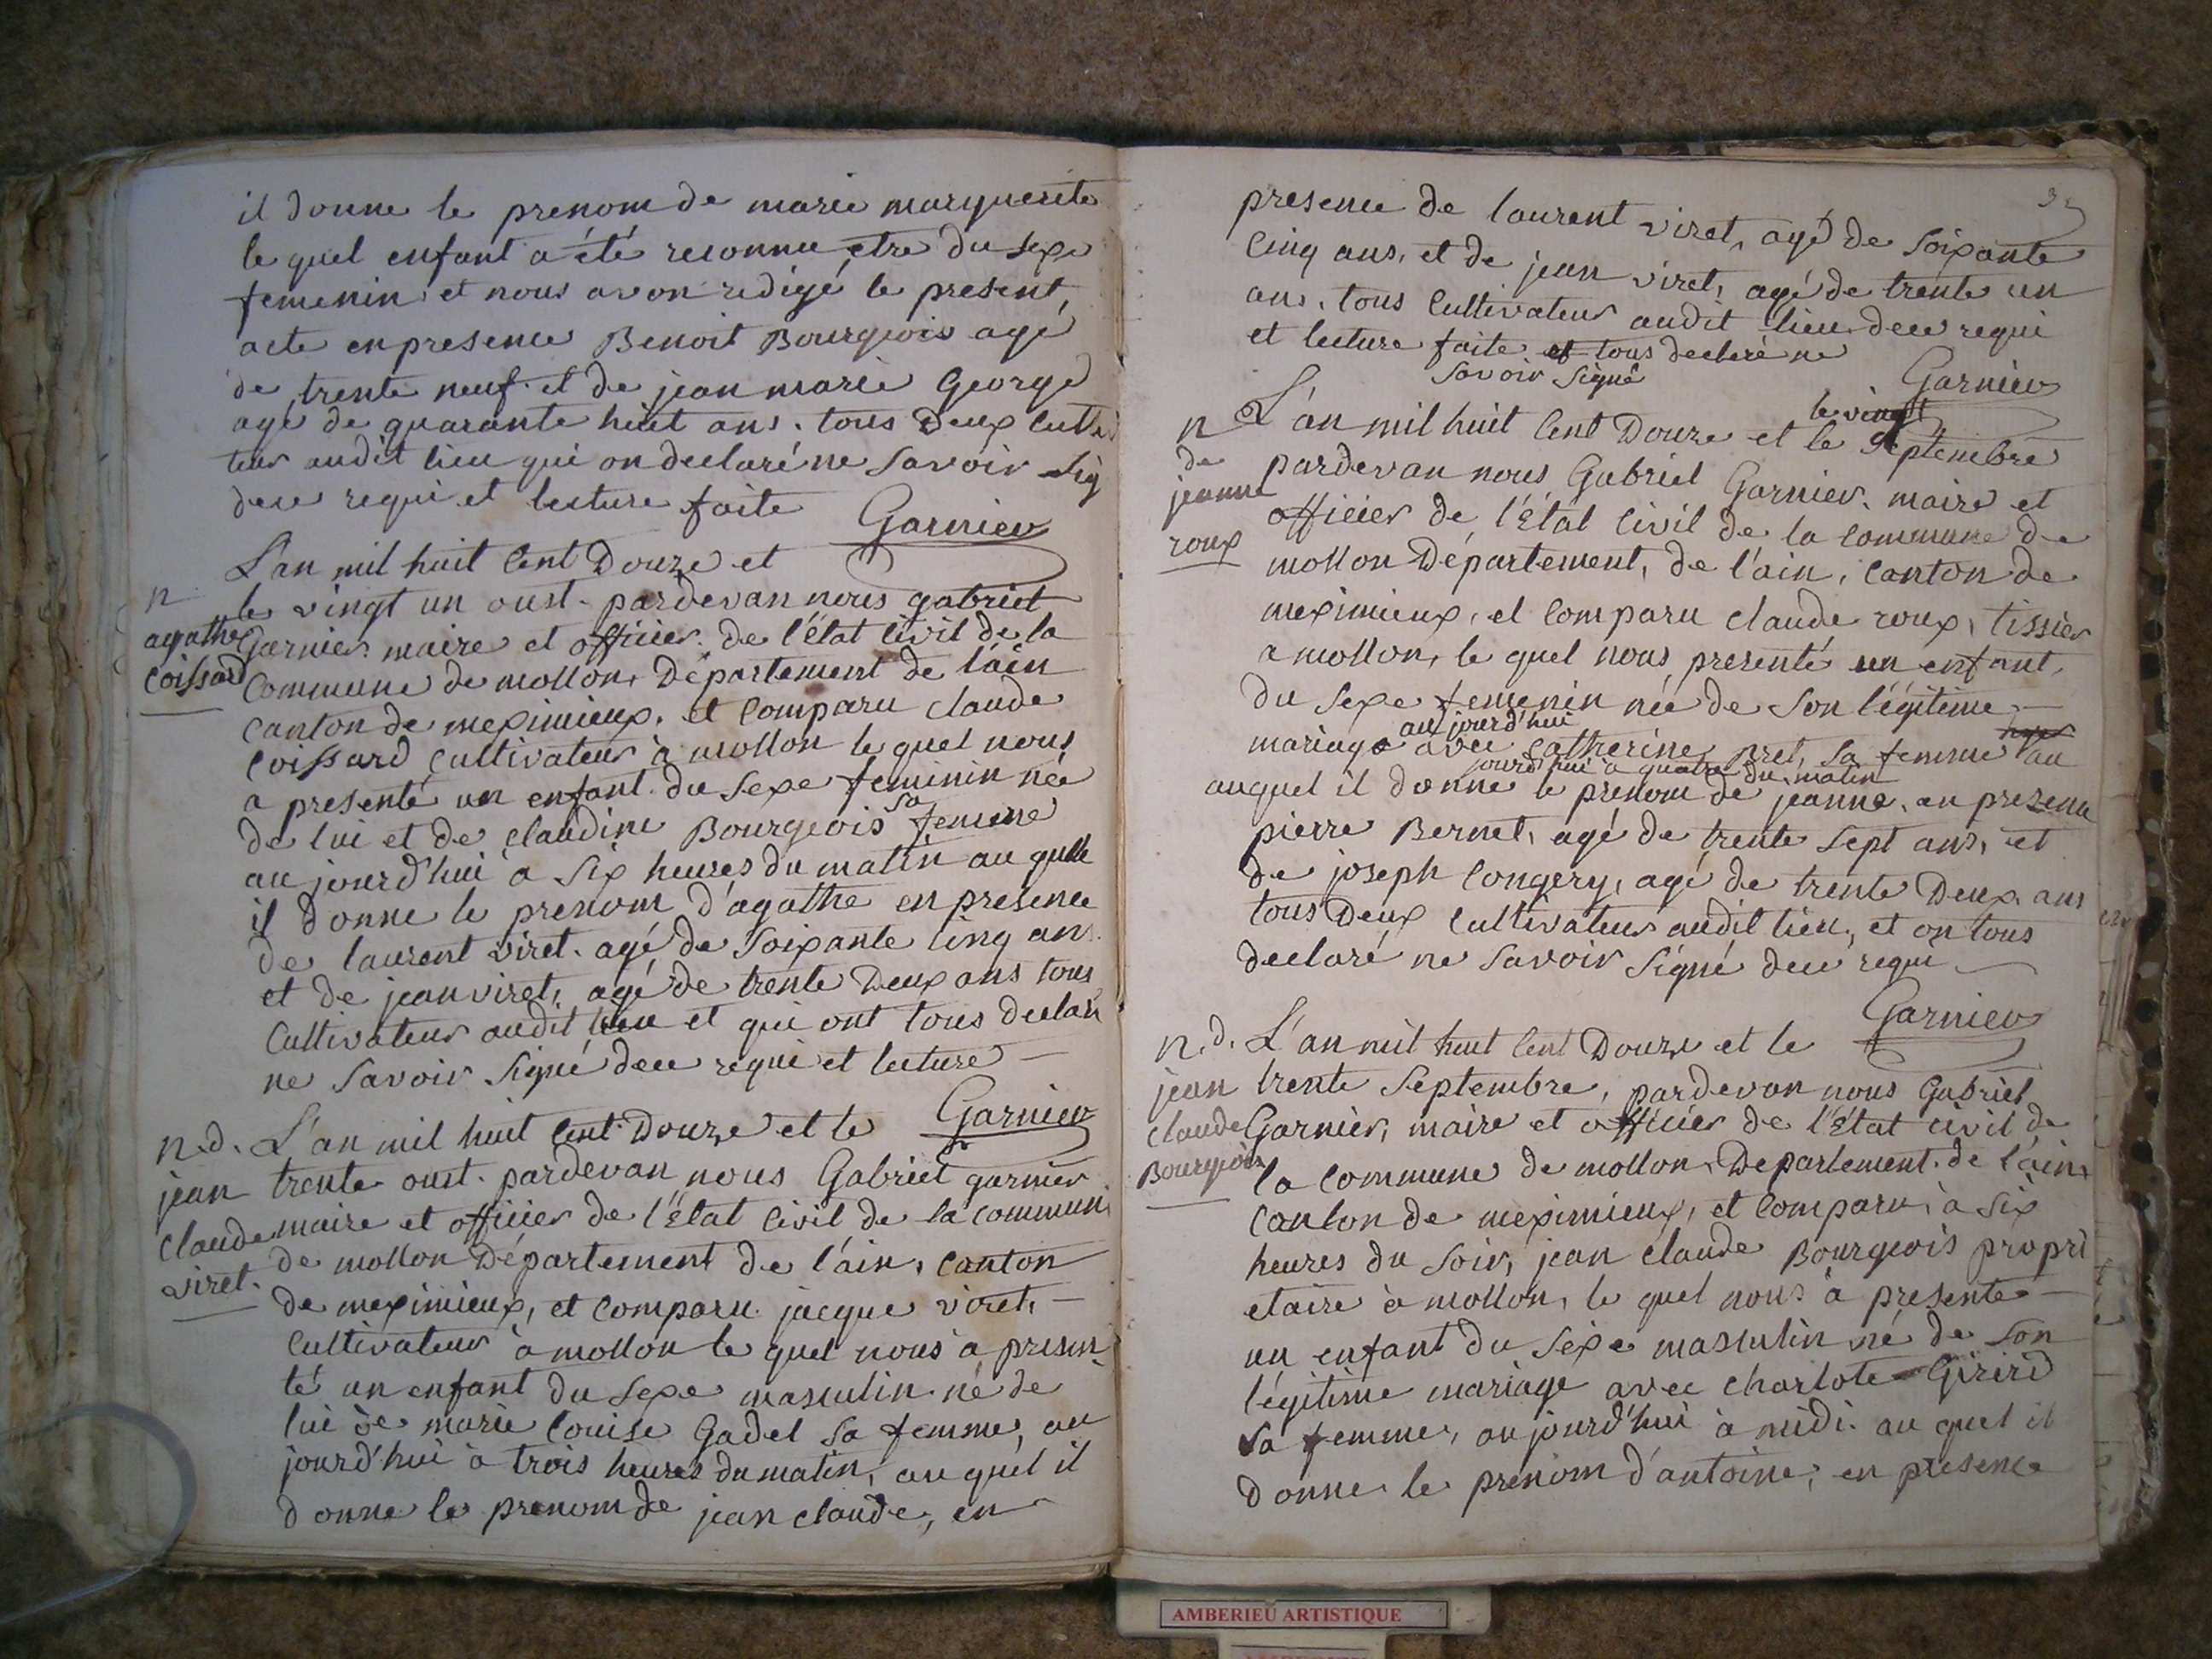 il donne le prenom de marie marguerite
le quel enfant a été reconnu etre du sexe
femenin et nous avon redigé le present
acte en presence Benoit Bourgeois agé
de trente neuf. et de jean marie George
agé de quarante huit ans. tous Deux culti
teur audit lieu qui on declaré ne Savoir sig
dece requi et lecture faite Garnier
n
agathe
Coissard
L'an mil huit Cent Douze et
le vingt un oust. pardevan nous gabriel
Garnier maire et officier de l'état civil de la
Commune de mollon, Département de l'ain
Canton de meximieux, et Comparu claude
Coissard Cultivateur à mollon le quel nous
a presenté un enfant du Sexe feminin née
de lui et de claudine Bourgeois sa femme
au jourd'hui à Six heures du matin au quelle
il donne le prenom d'agathe en presence
de laurent viret. agé de Soixante Cinq ans.
et de jean viret, agé de trente Deux ans tous
Cultivateur audit lieu et qui ont tous declaré
ne Savoir Signé dece requi et lecture —
Garnier
n.d.
jean
claude
viret.
L'an mil huit Cent Douze et le
trente oust. pardevan nous Gabriel garnier
maire et officier de l'Etat Civil de la commun
de mollon Département de l'ain, Canton
de meximieux, et Comparu jacque viret, —
Cultivateur à mollon le quel nous à presen
té un enfant du Sexe masculin né de
lui de marie louise Gadel Sa femme, au
jourd'hui à trois heures du matin, au quel il
donne le prenom de jean claude, en
presence de laurent viret, agé de Soixante
Cinq ans, et de jean viret, agé de trente un
ans, tous Cultivateur audit lieu dece requi
et lecture faite et tous decleré ne
Savoir Signé Garnier
n
de
jeanne
roux
L'an mil huit Cent Douze et le le vingt Septembre
pardevan nous Gabriel Garnier, maire et
officier de l'État Civil de la Commune de
mollon Département, de l'ain, Canton de
meximieux, et Comparu claude roux, tissier
a mollon, le quel nous presenté un enfant,
du Sexe femenin née de Son légitime —
au jourd'hui
mariage avec catherine pret, Sa femme au
jourd'hui à quatre du matin
auquel il donne le prenom de jeanne, an presence
pierre Bernet, agé de trente Sept ans, et
de joseph Congery, agé de trente Deux ans
tous Deux Cultivateur audit lieu, et on tous
declaré ne Savoir Signé dece requi —
Garnier
n.d.
jean
claude
Bourgeois
L'an mil huit Cent Douze et le
trente Septembre, pardevan nous Gabriel
Garnier, maire et officier de l'État civil de
la Commune de mollon, Departement de l'ain,
Canton de meximieux, et Comparu, à Six
heures du Soir, jean claude Bourgeois propri
etaire à mollon, le quel nous à presente —
un enfant du Sexe masculin né de Son
légitime mariage avec charlote Girird
Sa femme, au jourd'hui à midi. au quel il
donne le prenom d'antoine, en presence
AMBERIEU ARTISTIQUE